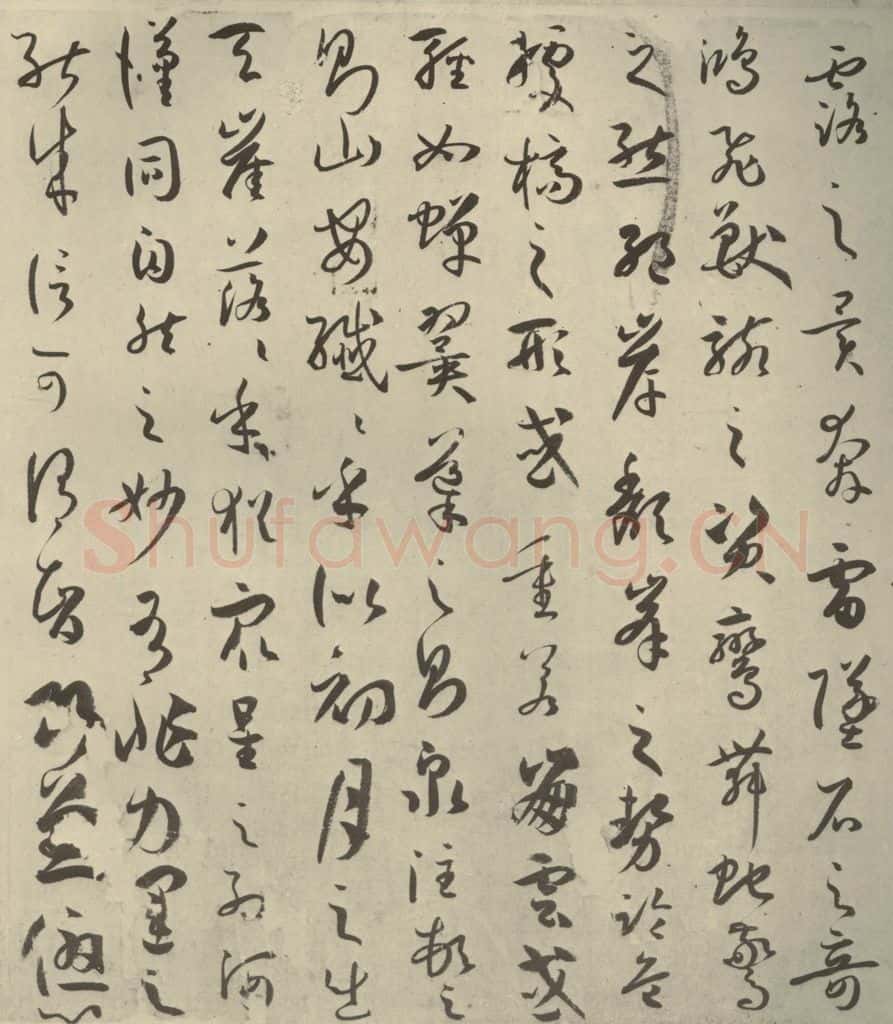 露之異奔雷墜石之奇
鴻飛獸駭之資鸞舞蛇驚
之態絕岸頹峯之勢臨危
據槁之形或重若崩雲或
輕如蟬翼導之則泉注頓之
則山安纖〻乎似初月之出
天崖落〻乎猶衆星之列河
漢同自然之妙有非力運之
能成信可謂智巧兼優心
Shufawang.CN